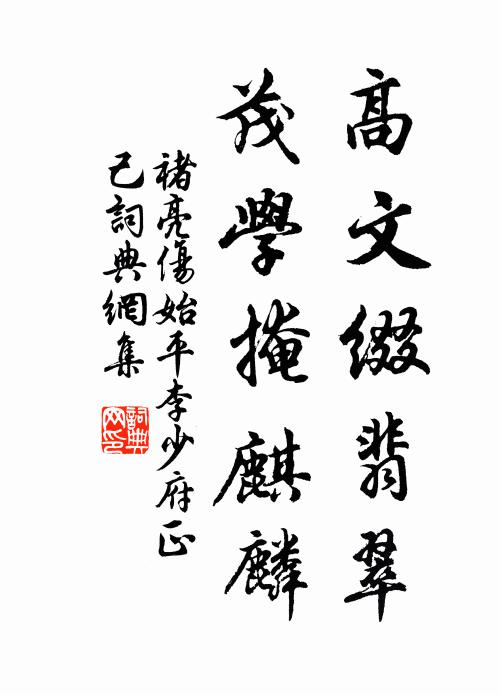 高文缀翡翠
茂學掩麒麟
褚亮傷始平李少府正
己詞典網集
詞典
网印